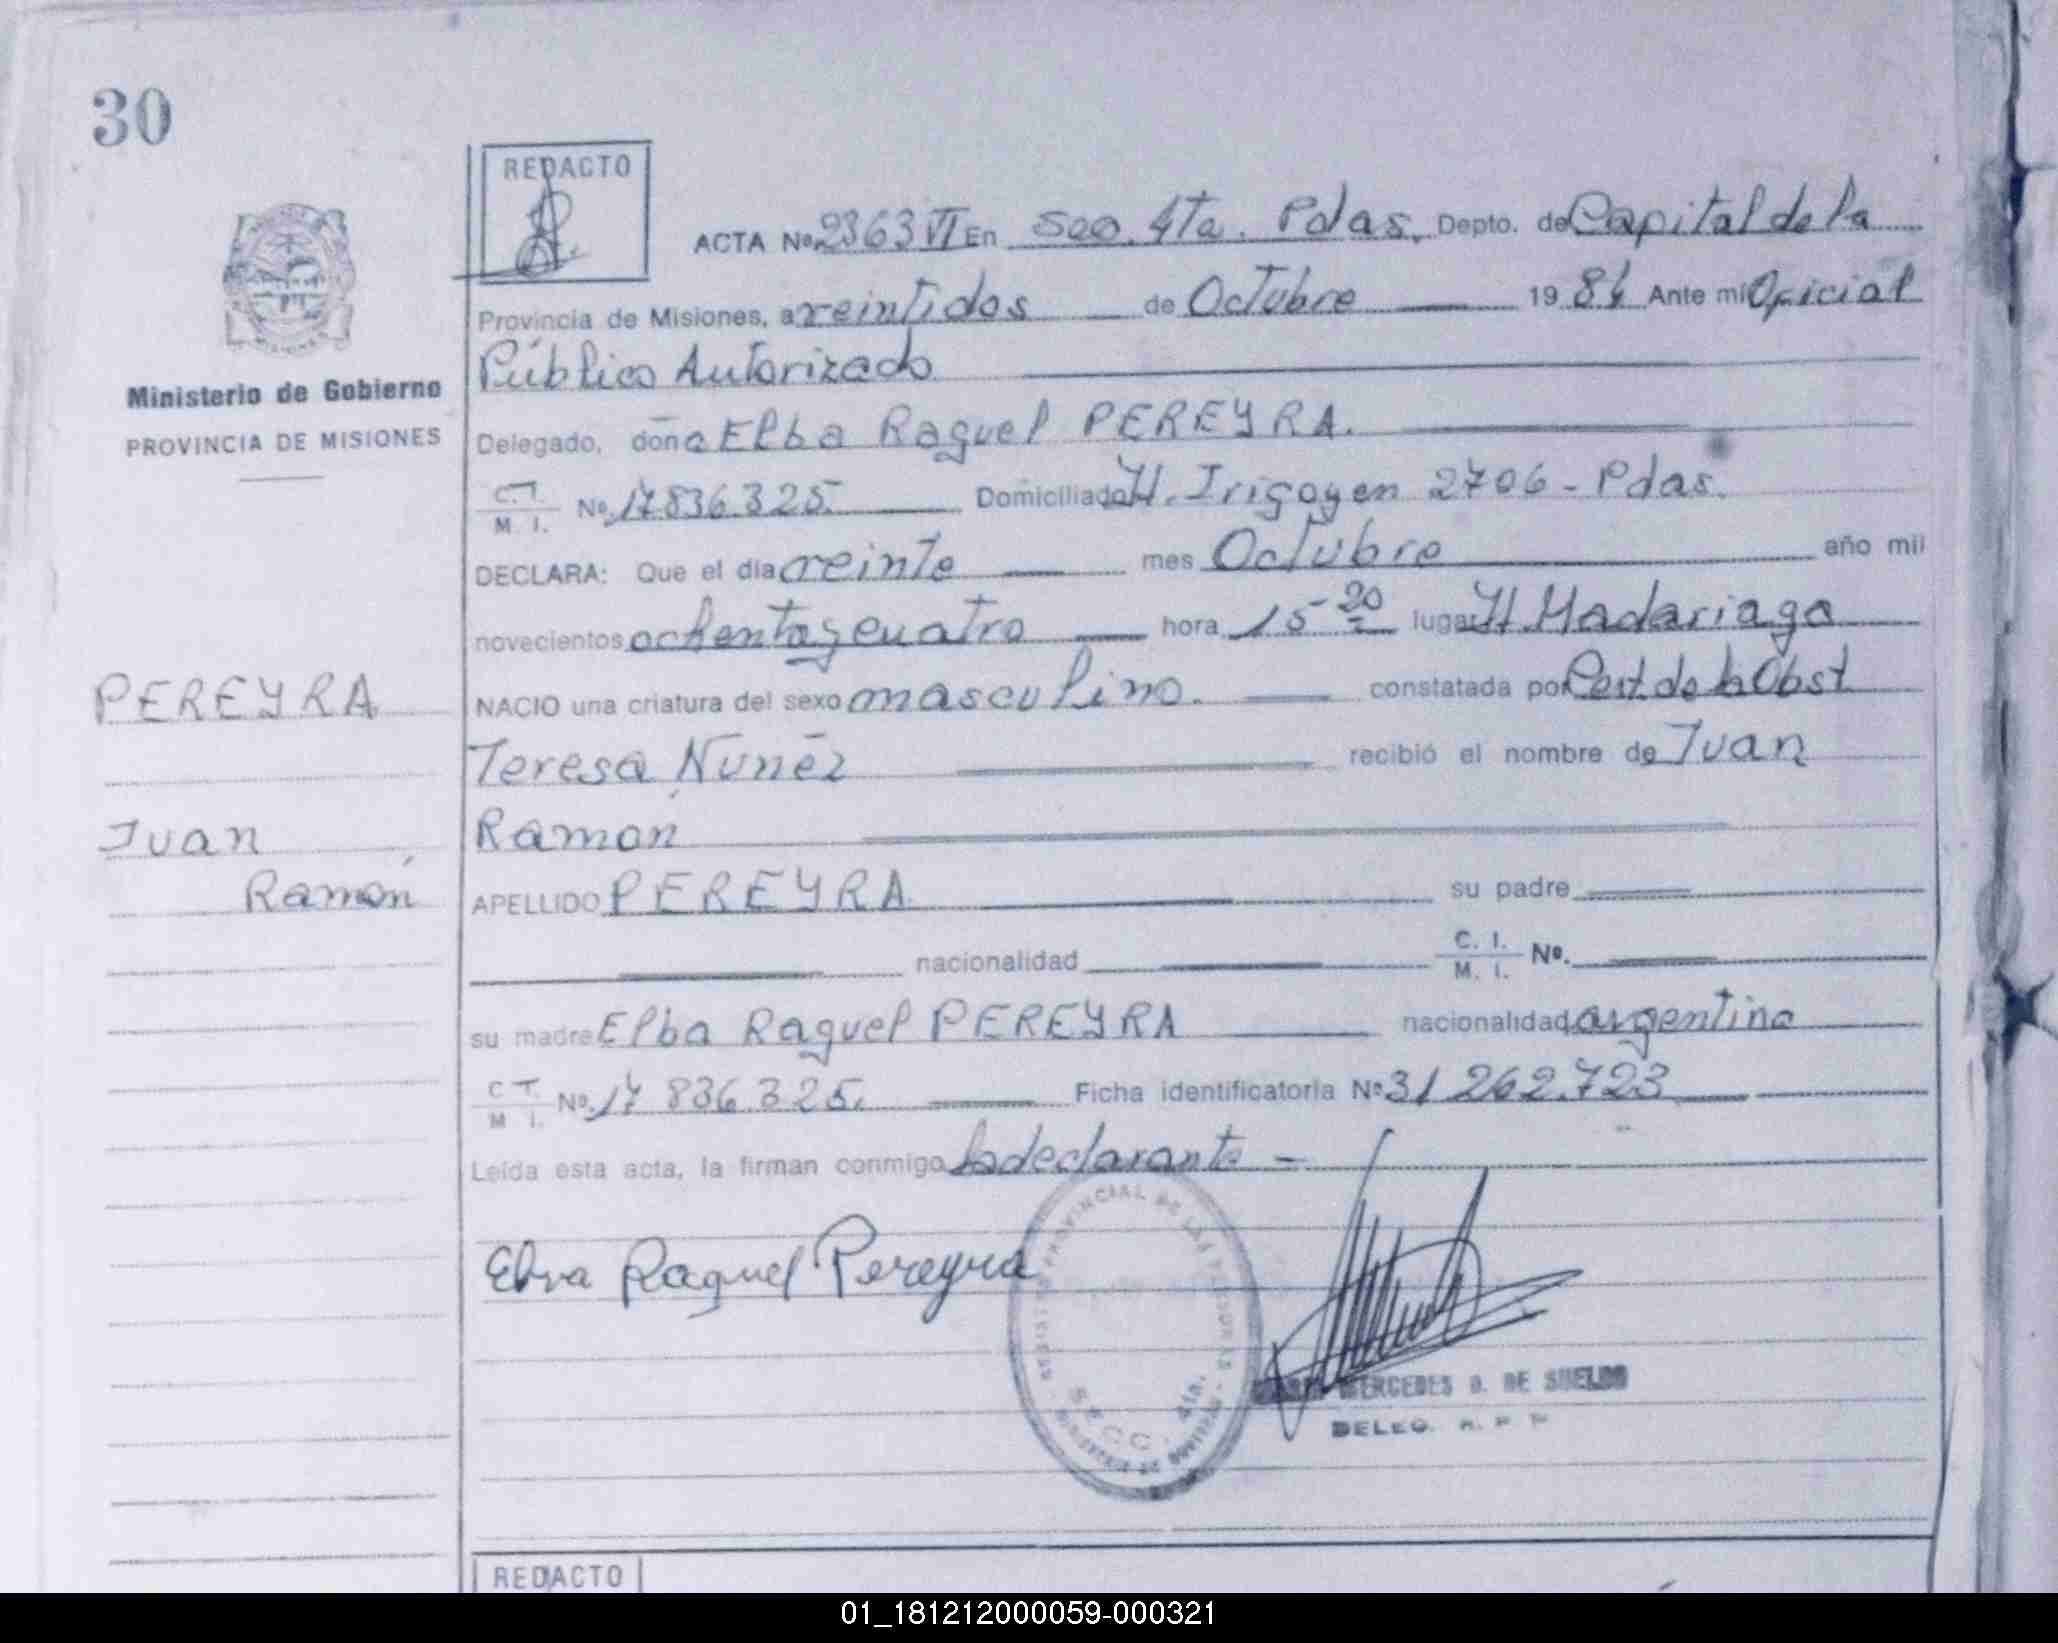 30
REDACTO
ACTA Nº 2363 VI En Sec. 4ta. Pdas. Depto. de Capital de la
Provincia de Misiones, a veintidos de Octubre 1984 Ante mi Oficial
Público Autorizado
Ministerio de Gobierno
PROVINCIA DE MISIONES
Delegado, doña Elba Raquel PEREYRA.
C.I. M. I. Nº 17.836.325. Domiciliado H. Irigoyen 2706 - Pdas.
DECLARA: Que el día veinte mes Octubre año mil
novecientos ochentaycuatro hora 15-20 lugar H. Madariaga
PEREYRA
NACIO una criatura del sexo masculino. constatada por Cert. de la Obst
Teresa Núñez recibió el nombre de Juan
Juan
Ramón
Ramón
APELLIDO PEREYRA su padre
nacionalidad C. I. M. I. Nº.
su madre Elba Raquel PEREYRA nacionalidad argentina
C I. M I. Nº. 17 836.325. Ficha identificatoria Nº 31 262.723
Leída esta acta, la firman conmigo la declarante -
Elva Raquel Pereyra
REGISTRO PROVINCIAL DE LAS PERSONAS
SECC. 4ta.
MINISTERIO DE GOBIERNO
MERCEDES D. DE SUELDO
DELEG. R. P. P
REDACTO
01_181212000059-000321